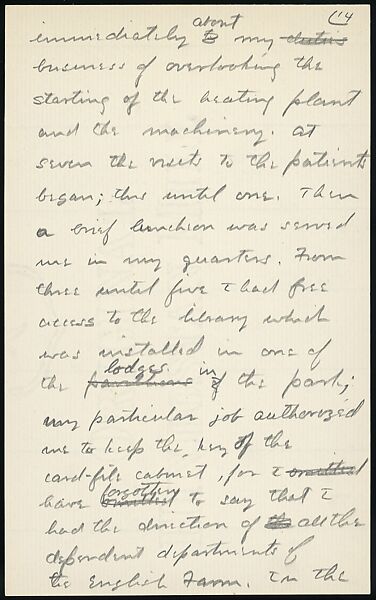 (14
immediately about my duties
business of overlooking the
starting of the heating plant
and the machinery. At
seven the visits to the patients
began; this until one. Then
a brief luncheon was served
me in my quarters. From
three until five I had free
access to the library which
was installed in one of
the pavilions lodges in of the park;
my particular job authorized
me to keep the key of the
card-file cabinet, for I omitted
have forgotten omitted to say that I
had the direction of the all the
dependent departments of
the English Farm. In the